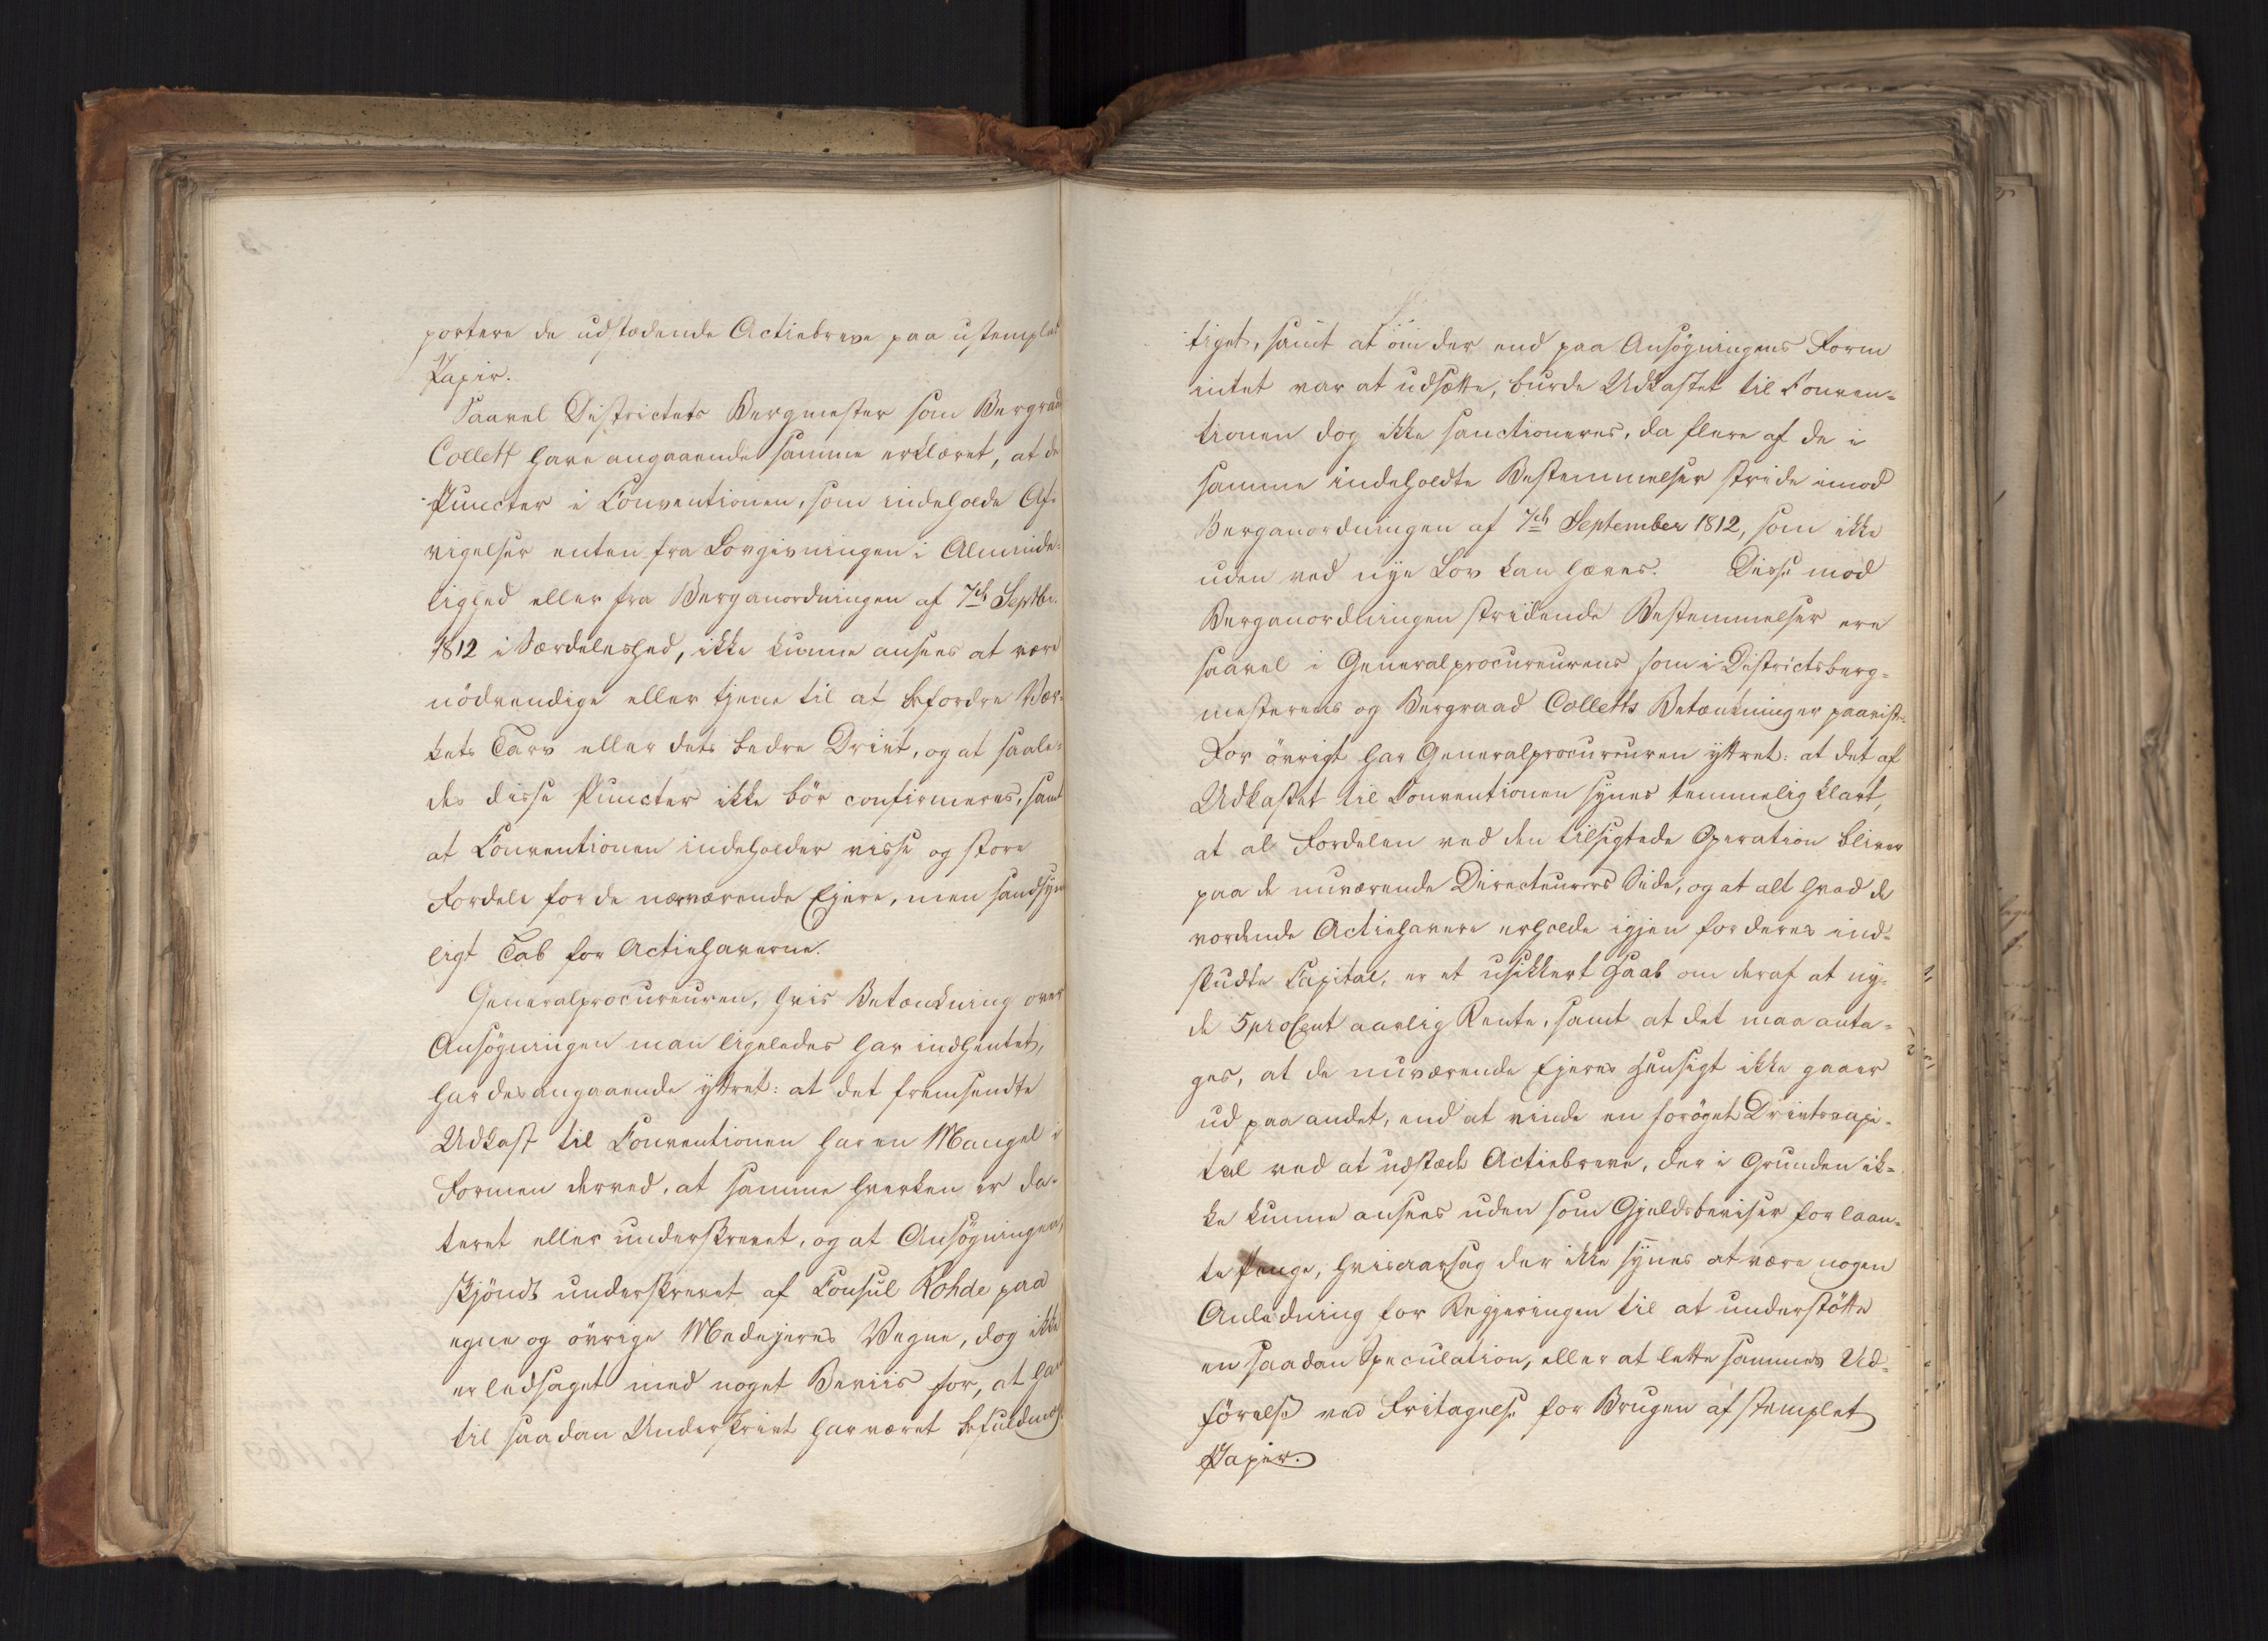 portere de udstædende Actiebreve paa ustemplet
Papir.
Saavel Districtets Bergmester som Bergraad
Collett have angaaende samme erklæret, at de
Puncter i Conventionen, som indeholde Af-
vigelser enten fra Lovgivningen i Alminde-
lighed eller fra Berganordningen af 7de Septbr.
1812 i Særdeleshed, ikke kunne ansees at være
nödvendige eller tjene til at befordre Vær-
kets Tarv eller dets bedre Drivt, og at saale-
des disse Puncter ikke bör confirmeres, samt
at Conventionen indeholder visse og store
Fordele for de nærværende Ejere, men sandsyn
ligt Tab for Actiehaverne.
Generalprocureuren, hvis Betænkning over
Ansögningen man ligeledes har indhentet,
har desangaaende yttret: at det fremsendte
Udkast til Conventionen har en Mangel i
Formen derved, at samme hverken er da-
teret eller underskrevet, og at Ansögningen,
skjöndt underskrevet af Consul Rohde paa
egne og övrige Medejeres Vegne, dog ikke
er ledsaget med noget Beviis for, at han
til saadan Underskrivt har været befuldmæg-
tiget, samt at om der end paa Ansögningens Form
intet var at udsætte, burde Udkastet til Conven-
tionen dog ikke sanctioneres, da flere af de i
samme indeholdte Bestemmelser stride imod
Berganordningen af 7de September 1812, som ikke
uden ved nye Lov kan hæves. Disse mod
Berganordningen stridende Bestemmelser ere
saavel i Generalprocureurens som i Districtsberg-
mesterens og Bergraad Colletts Betænkninger paaviste.
For övrigt har Generalprocureuren yttret: at det af
Udkastet til Conventionen synes temmelig klart,
at al Fordelen ved den tilsigtede Operation bliver
paa de nuværende Directeurers Side, og at alt hvad de
vordende Actiehavere erholde igjen for deres ind-
skudte Capital, er et usikkert Haab om deraf at ny-
de 5 proCent aarlig Rente, samt at det maa anta-
ges, at de nuværende Ejeres Hensigt ikke gaaer
ud paa andet, end at vinde en foröget Drivtscapi-
tal ved at udstæde Actiebreve, der i Grunden ik-
ke kunne ansees uden som Gjeldsbeviser for laan-
te Penge, hvisaarsag der ikke synes at være nogen
Anledning for Regjeringen til at understötte
en saadan Speculation, eller at lette sammes Ud-
förelse ved Fritagelse for Brugen af stemplet
Papir.